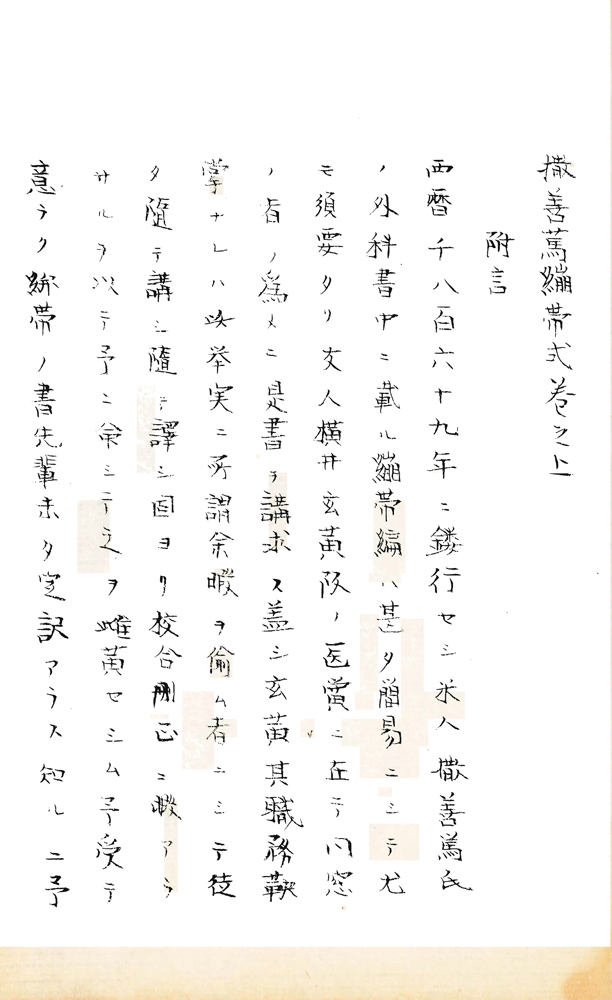 撒善篤繃帯式巻之上
附言
西暦千八百六十九年ニ鏤行セシ米人撒善篤氏
ノ外科書中ニ載ル繃帯編ハ甚タ簡易ニシテ尤
モ須要タリ友人横井玄黄阪ノ医黌ニ在テ同窓
ノ者ノ為メニ是書ヲ講求ス盖シ玄黄其職務鞅
掌ナレハ此挙実ニ所謂余暇ヲ偷ム者ニシテ徒
タ随テ講シ随テ譯シ固ヨリ校合刪正ニ暇アラ
サルヲ以テ予ニ命シテ之ヲ雌黄セシム予受テ
意ラク繃帯ノ書先輩未タ定訳アラス知ルニ予